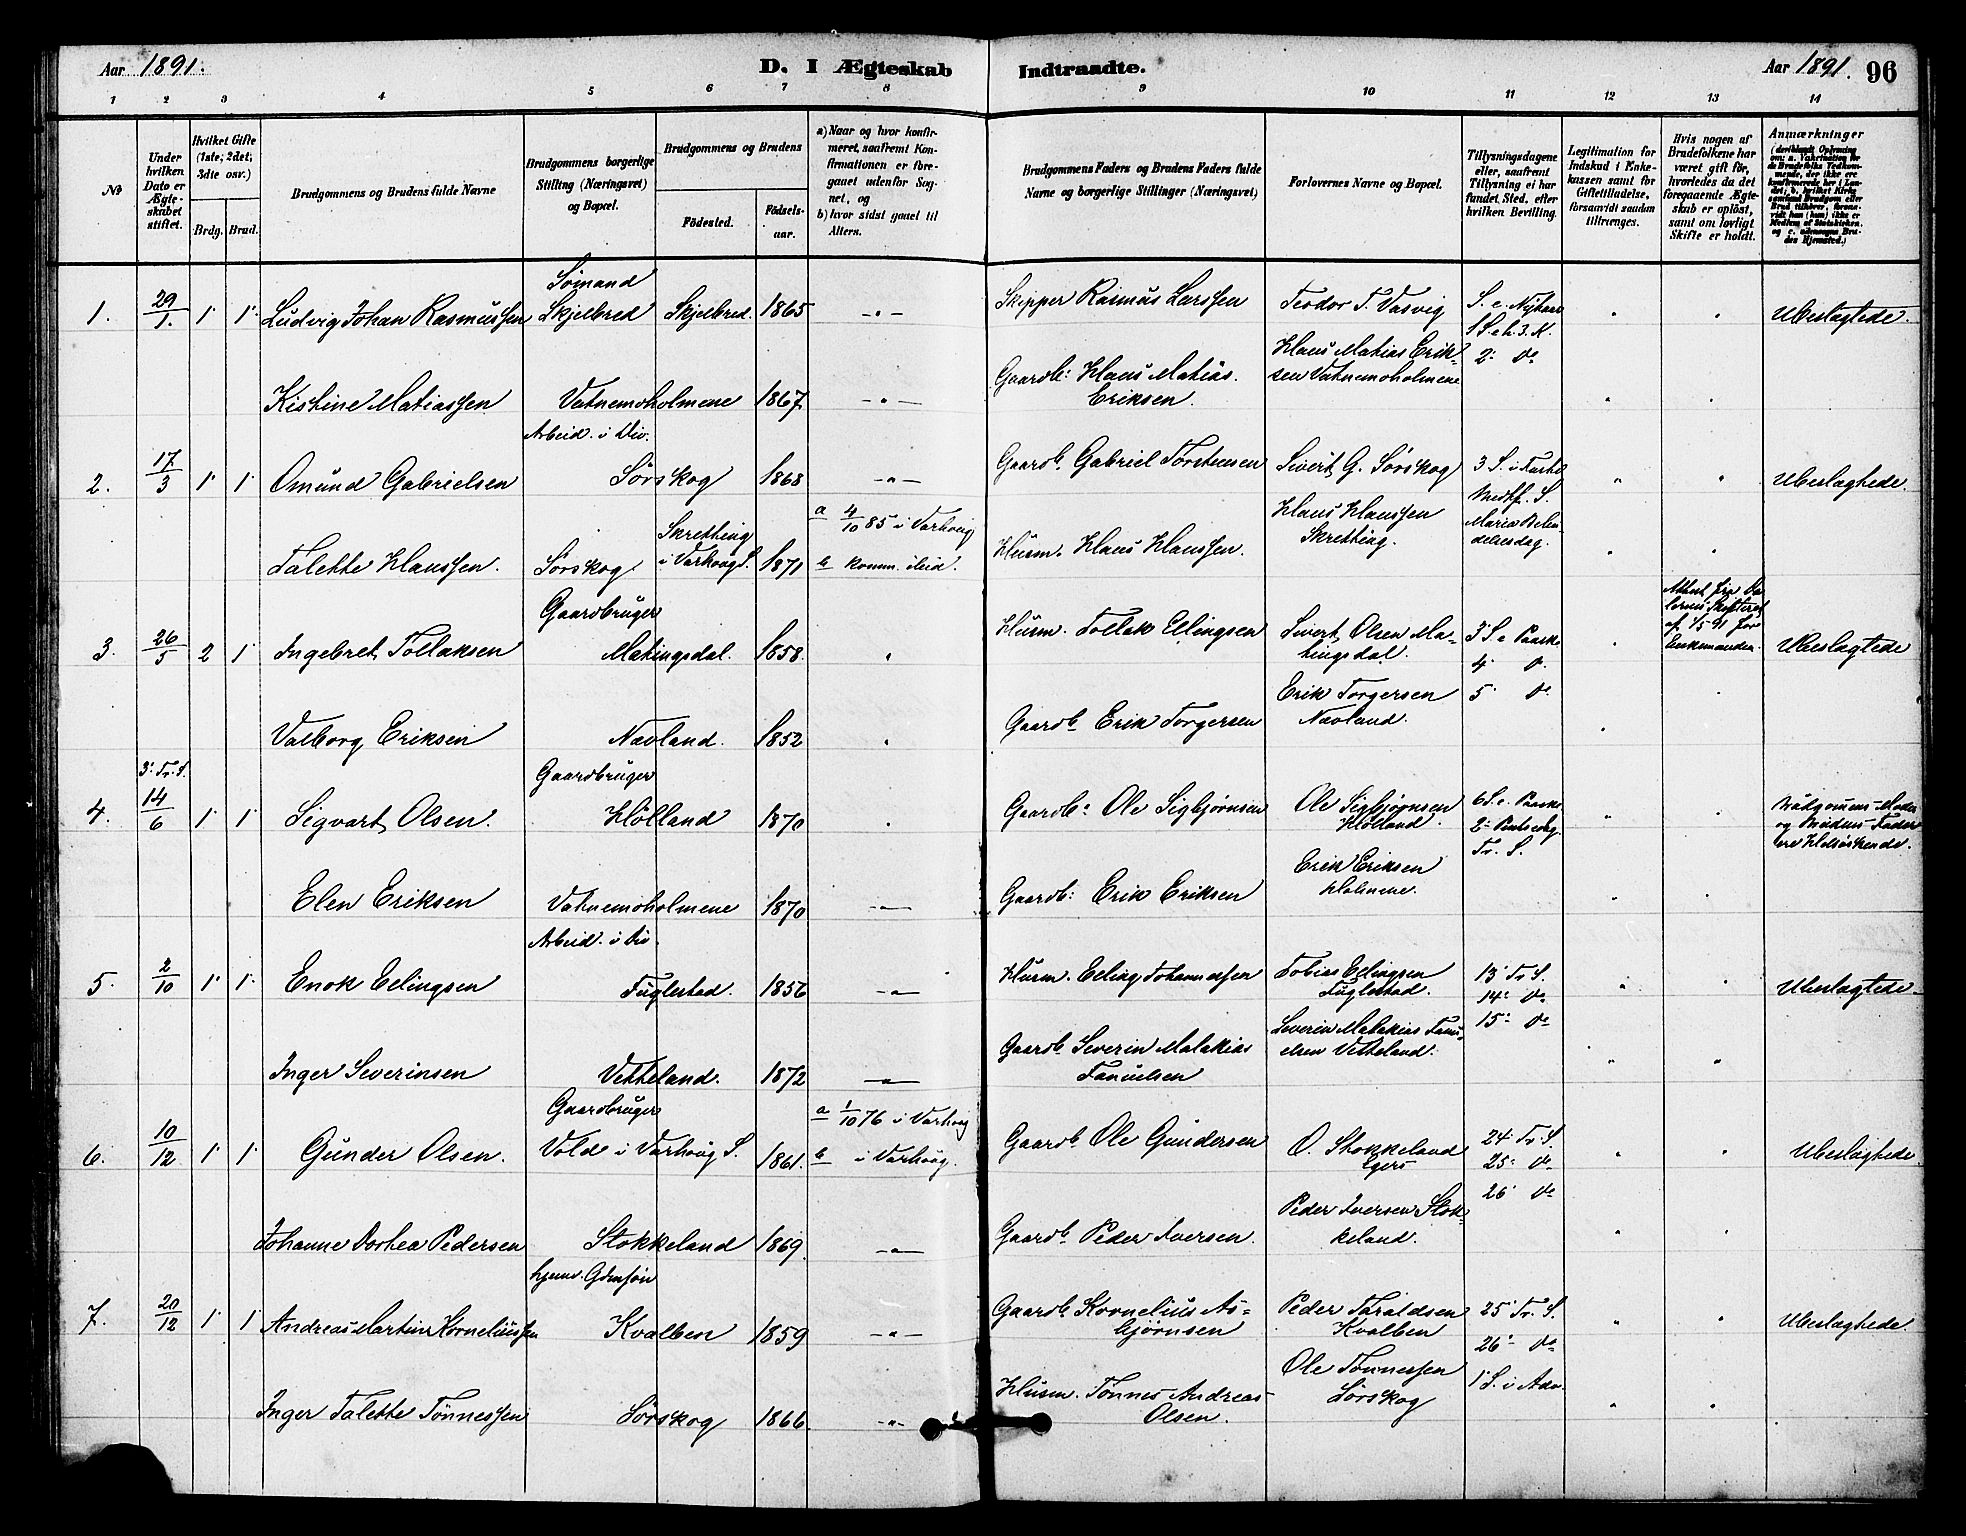 Aar 1891.
D. I Ægteskab Indtraadte.
Aar 1891. 96
1 2 3 4 5 6 7 8 9 10 11 12 13 14
№
Under hvilken Dato er Ægteskabet stiftet.
Hvilket Gifte (1ste, 2det, 3die osv.)
Brdg. Brud.
Brudgommens og Brudens fulde Navne
Brudgommens borgerlige Stilling (Næringsvei) og Bopæl.
Brudgommens og Brudens
Födested. Födselsaar.
a) Naar og hvor konfirmeret, saafremt Konfirmationen er foregaaet udenfor Sognet, og
b) hvor sidst gaaet til Alters.
Brudgommens Faders og Brudens Faders fulde Navne og borgerlige Stillinger (Næringsvei)
Forlovernes Navne og Bopæl.
Tillysningsdagene eller, saafremt Tillysning ei har fundet Sted, efter hvilken Bevilling.
Legitimation for Indskud i Enkekassen samt for Giftetilladelse, forsaavidt saadan tiltrænges.
Hvis nogen af Brudefolkene har været gift før, hvorledes da det foregaaende Ægteskab er oplöst, samt om lovligt Skifte er holdt.
Anmærkninger
1. 29/1. 1 1 Ludvig Johan Rasmussen Sømand Skjelbred Skjelbred 1865 -"- Skipper Rasmus Larssen Teodor T. Vasvig S. e. Nytaar " " Ubeslægtede.
1 S. e. h. 3. K.
2' do
Kistine Matiassen Vatnemoholmene 1867 -"- Gaardb: Klaus Matias Eriksen. Klaus Matias Eriksen Vatnemoholmene " "
2. 17/3 1 1 Omund Gabrielsen Arbeid. i Div. Sørskog 1868 -"- Gaardb. Gabriel Torstensen Sivert G. Sørskog 3 S. i Faste " " Ubeslægtede.
Midtf. S.
Mariæ Bebudelsesdag.
Talette Klaussen. Sørskog Skretting i Varhoug S. 1871 a 4/10 85 i Varhoug
b komm. ileid. Husm. Klaus Klaussen. Klaus Klaussen Skretting. " "
3. 26/5 2 1 Ingebret Tollaksen Gaardbruger Matingsdal. 1858 " Husm. Tollak Ellingsen Sivert Olsen Matingsdal. 3 S. e Paaske " Ubeslægtede
4' do
5' do
Valborg Eriksen Navland. 1852 " Gaardb Erik Torgersen Erik Torgersen Navland. " "
4. 3' Tr. S. 14/6 1 1 Sigvart Olsen. Gaardbruger Hølland 1870 " Gaardb: Ole Sigbjørnsen Ole Sigbjørnsen Hølland. 6 S. e. Paaske " " Brudgommens Moder og Brudens Fader ere Helsøskende.
Tr. S.
Elen Eriksen Vatnemoholmene 1870 -"- Gaardb: Erik Eriksen Erik Eriksen Holmene. " "
5. 2/10 1 1 Enok Ellingsen Arbeid. i Div. Fuglestad. 1856 -"- Husm. Elling Johannessen Tobias Ellingsen Fuglestad. 13' Tr. S. " " Ubeslægtede
14' do
15' do
Inger Severinsen Vetteland. 1872 -"- Gaardb. Severin Malakias Fanuelsen Severin Malakias Fanuelsen Vetteland. " "
6. 10/12 1 1 Gunder Olsen. Gaardbruger Vold i Varhoug S. 1861. a 1/10 76 i Varhoug
b i Varhoug. Gaardb. Ole Gundersen O. Stokkeland Egers 24 Tr. S. " " Ubeslægtede
25' do
26' do
Johanne Dorhea Pedersen Stokkeland 1869. -"- Gaardb. Peder Iversen. Peder Iversen Stokkeland. " "
7. 20/12 1 1 Andreas Martin Korneliussen Kvalben 1859 -"- Gaardb. Kornelius Asbjørnsen Peder Taraldsen Kvalben 25' Tr. S. " " Ubeslægtede.
26' do
1' S. i Adv.
Inger Talette Tønnessen Sørskog 1866 -"- Husm. Tønnes Andreas Olsen. Ole Tønnessen Sørskog " "